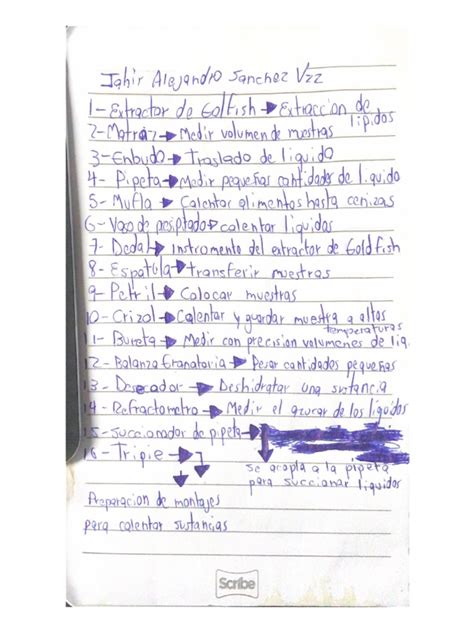 Jahir Alejandro Sanchez Vzz
1-Extractor de Golfish → Extraccion de lipidos
2-Matraz → Medir volumen de muestras
3-Enbudo → Traslado de liquido
4- Pipeta → Medir pequeñas cantidades de liquido
5- Mufla → Calentar alimentos hasta cenizas
6-Vaso de presiptado → calentar liquidos
7- Dedal → instrumento del extractor de Goldfish
8- Espatula → transferir muestras
9- Petril → Colocar muestras
10- Crizol → Calentar y guardar muestra a altas temperaturas
11- Bureta → Medir con precision volumenes de liq.
12- Balanza Granatoria → Pesar cantidades pequeñas
13- Desecador → Deshidratar una sustancia
14- Refractometro → Medir el azucar de los liquidos
15-Succionador de pipeta →
16- Tripie →
se acopla a la pipeta
para succionar liquidos
Preparacion de montajes
para calentar sustancias
Scribe